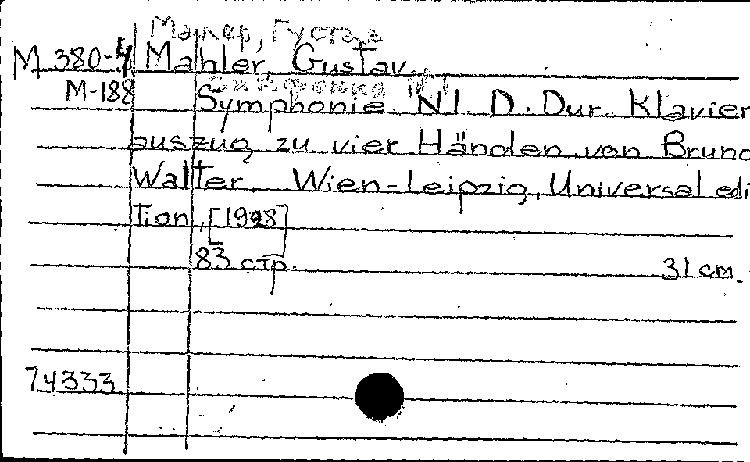 Малер, Густав
M 380-4 Mahler, Gustav.
Симфония №1
M-188 Symphonie N1 D. Dur. Klavier
auszug zu vier Händen von Bruno
Walter. Wien-Leipzig, Universal edi
tion, [1928]
83 стр. 31 cm.
74333